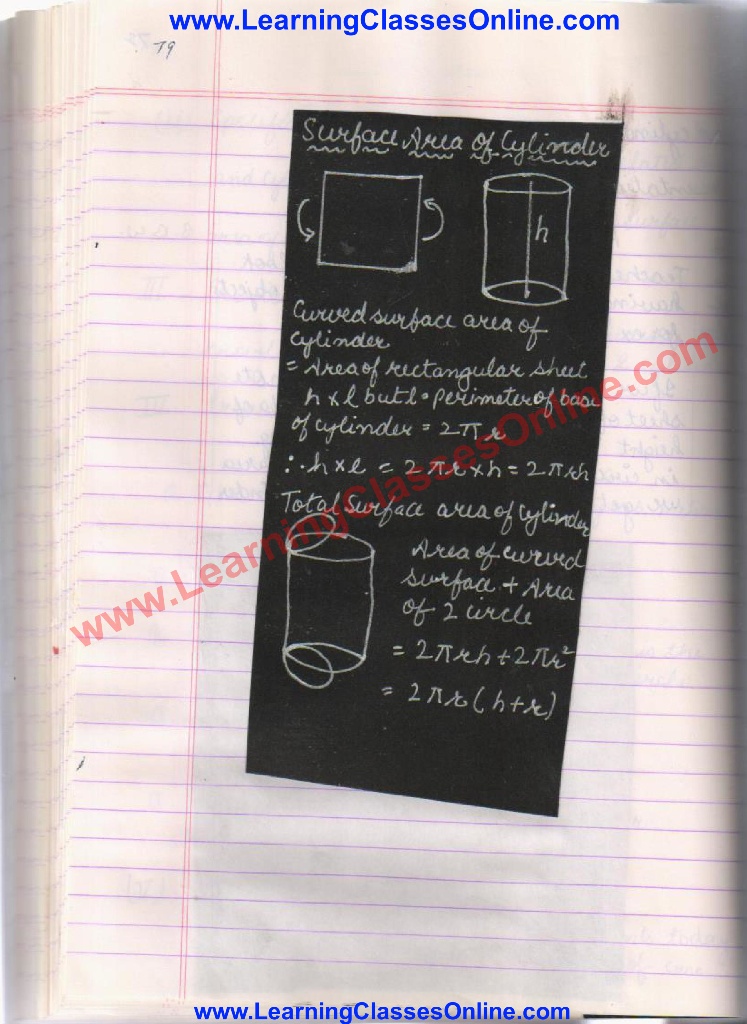 www.LearningClassesOnline.com
79
Surface Area of Cylinder
h
Curved surface area of
cylinder
= Area of rectangular sheet
h × l but l = perimeter of base
of cylinder = 2πr
∴ h × l = 2πr × h = 2πrh
Total Surface area of cylinder
Area of curved
surface + Area
of 2 circle
= 2πrh + 2πr²
= 2πr (h+r)
www.LearningClassesOnline.com
www.LearningClassesOnline.com